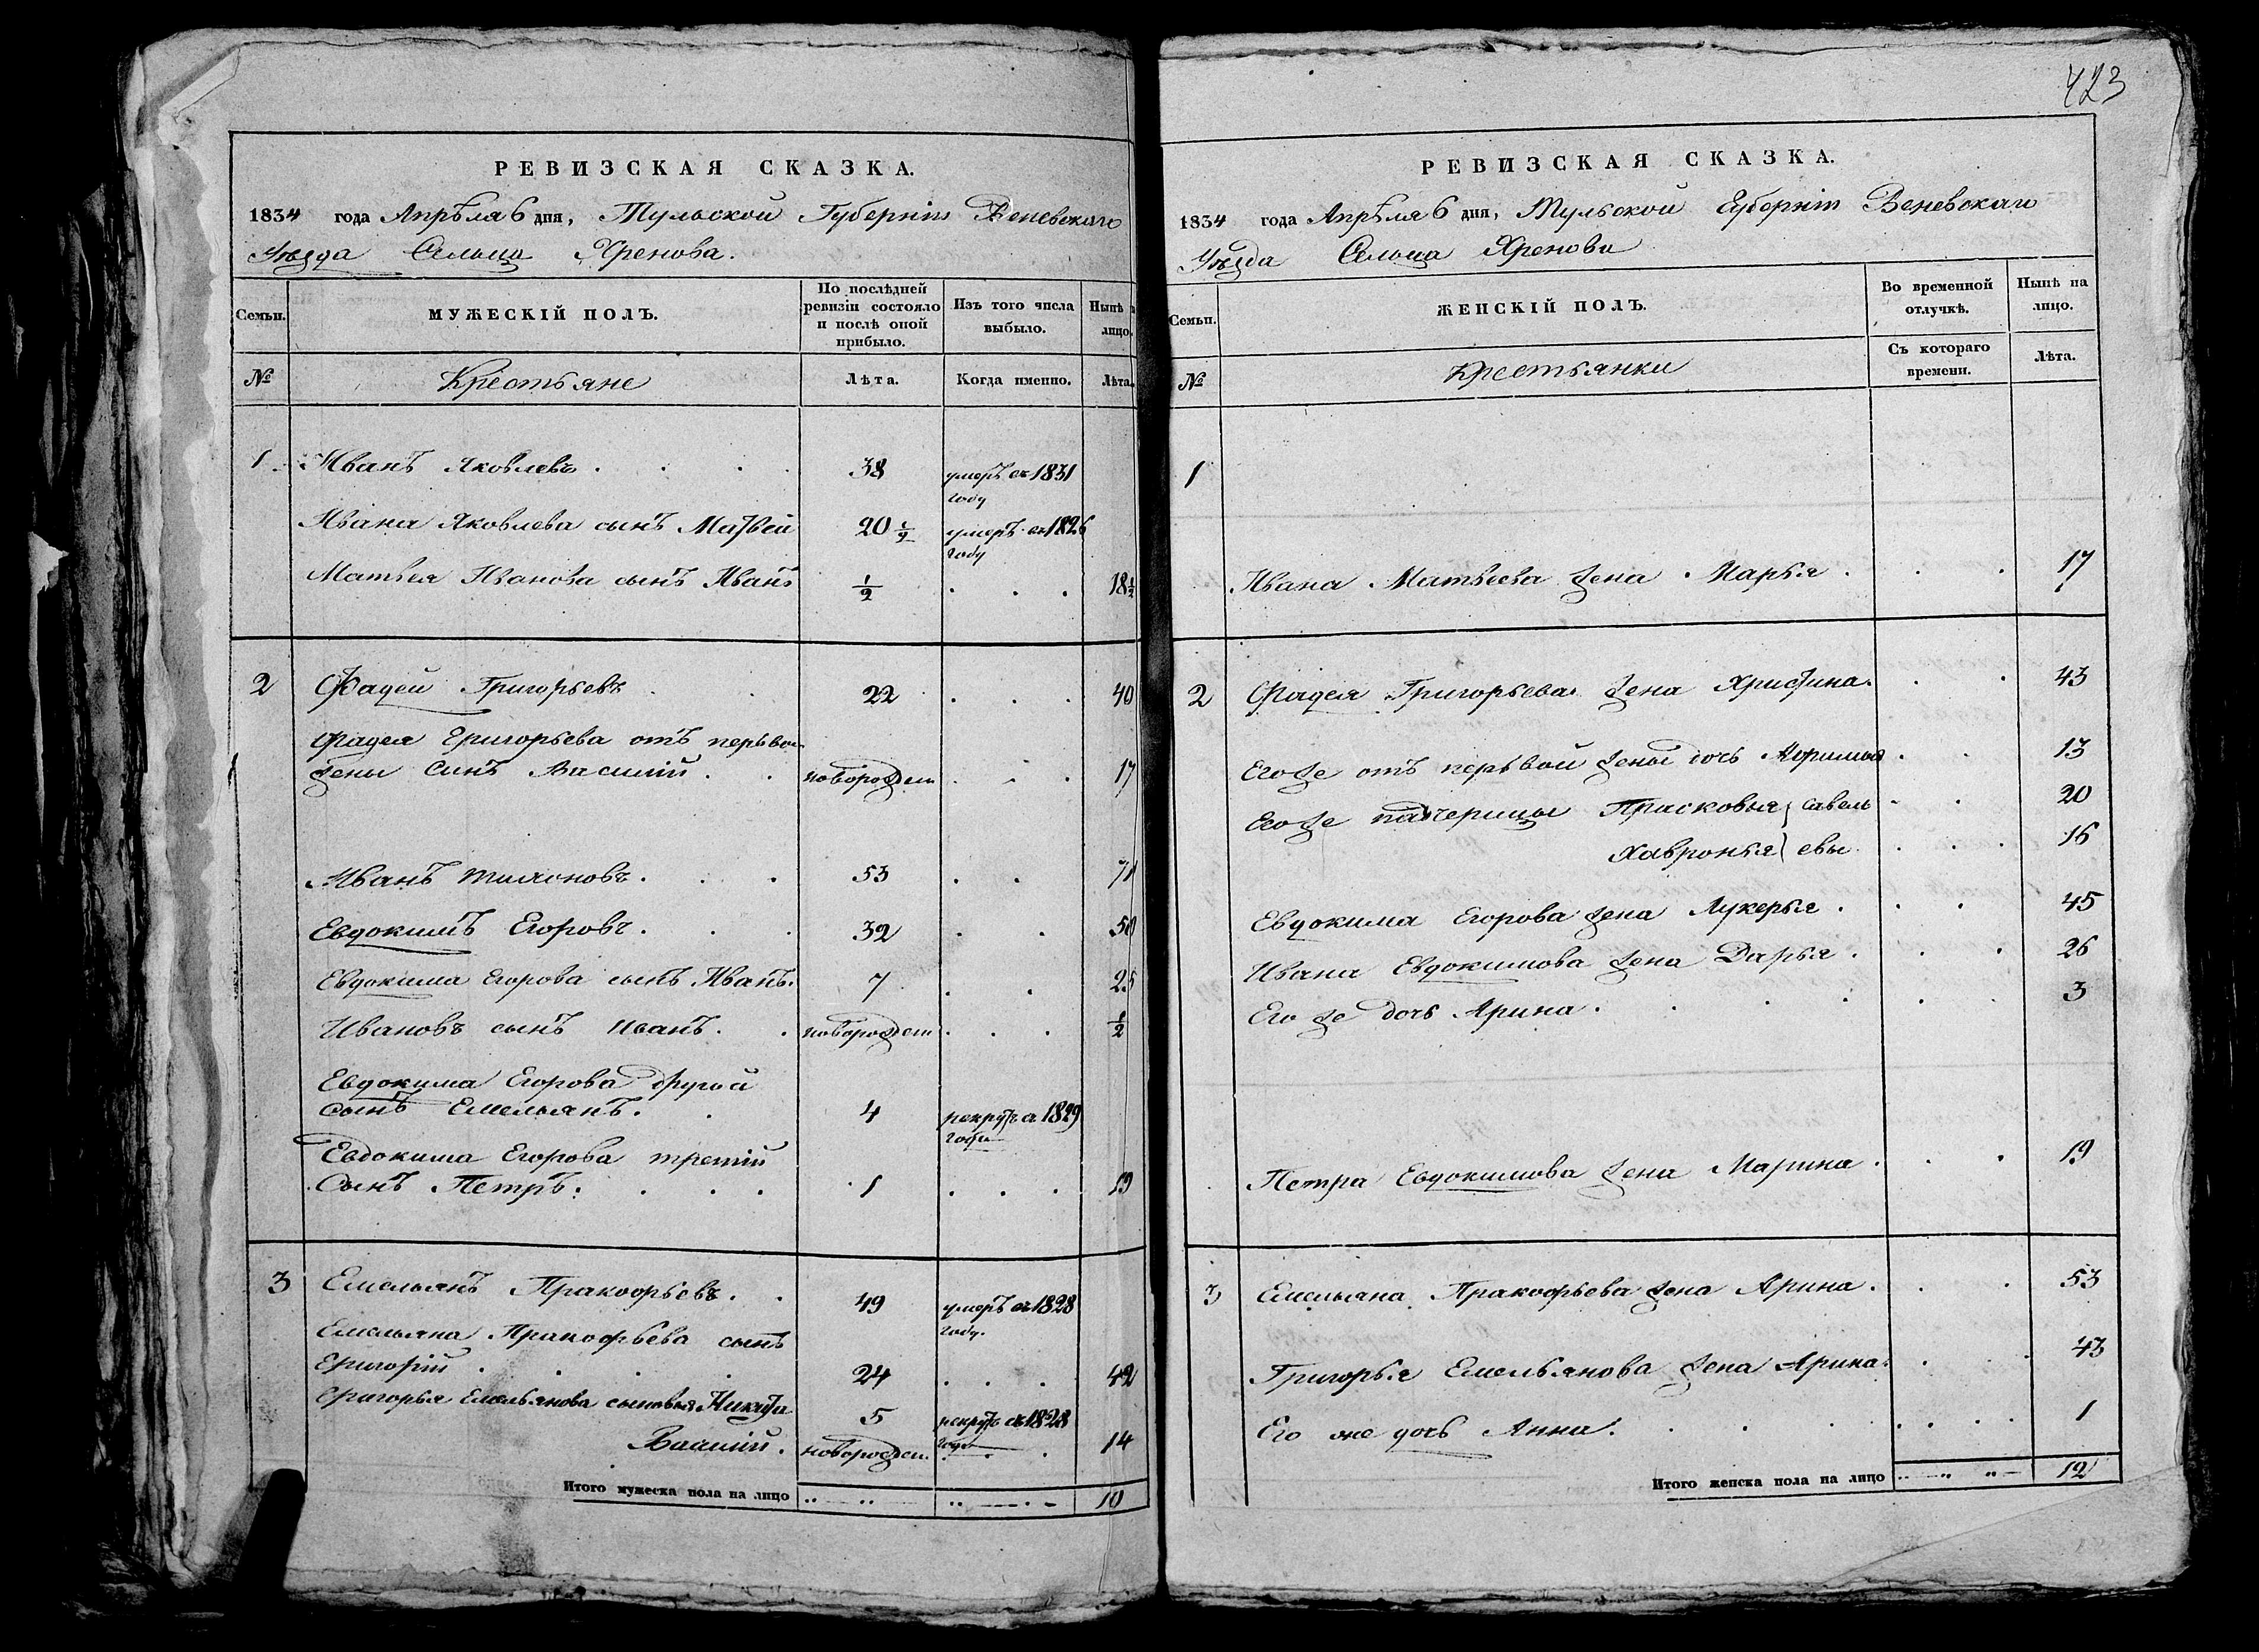 РЕВИЗСКАЯ СКАЗКА.
1834 года Апрѣля 6 дня, Тульской Губерніи Веневскаго
Уѣзда Сельца Хренова.
Семьи.
МУЖЕСКІЙ ПОЛЪ.
По послѣдней ревизіи состояло и послѣ оной прибыло.
Изъ того числа выбыло.
Нынѣ лицо.
№
Крестьяне
Лѣта.
Когда именно.
Лѣта.
1 Иванъ Яковлевъ . . . 38 умеръ въ 1831 году
Ивана Яковлева сынъ Матвей 20 ½ умеръ въ 1826 году
Матвея Иванова сынъ Иванъ ½ . . . 18½
2 Фадей Григорьевъ . . 22 . . . 40
Фадея Григорьева отъ первои
жены Сынъ Василий . . новорожден . . . 17
Иванъ . . . 53 . . 71
Евдокимъ Егоровъ . . . 32 . . 50
Евдокима Егорова сынъ Иванъ. 7 . . 25
Ивановъ сынъ Иванъ. . новорожден . . . ½
Евдокима Егорова другой
сынъ Емельянъ. . 4 рекрутъ съ 1829 года
Евдокима Егорова третий
Сынъ Петръ. . . . 1 . . . 19
3 Емельянъ Пракофьевъ. . 49 умеръ въ 1828 году.
Емельяна Пракофьева сынъ
Григорий . . . 24 . . . 42
Григорья Емельянова сыновья Никита 5 рекрутъ съ 1828 года
Василий. новорожден. . . 14
Итого мужеска пола на лицо „ — „ — „ — „ — 10
423
РЕВИЗСКАЯ СКАЗКА.
1834 года Апрѣля 6 дня, Тульской Губерніи Веневскаго
Уѣзда Сельца Хренова
Семьи.
ЖЕНСКІЙ ПОЛЪ.
Во временной отлучкѣ.
Нынѣ на лицо.
№
Крестьянки
Съ котораго времени.
Лѣта.
1
Ивана Матвеева жена Марья . . . 17
2 Фадея Григорьева жена Христина. . . 43
Его же отъ первой жены дочь . . 13
Его же падчерицы Прасковья } савель . . 20
Хавронья } евы . . . 16
Евдокима Егорова жена Лукерья . . . 45
Ивана Евдокимова жена Дарья . . . 26
Его же дочь Арина . . . . . . 3
Петра Евдокимова жена Марина . . . 19
3 Емельяна Пракофьева жена Арина . . . 53
Григорья Емельянова жена Арина. . . 43
Его же дочь Анна. . . . . . . . 1
Итого женска пола на лицо „ — „ „ — 12